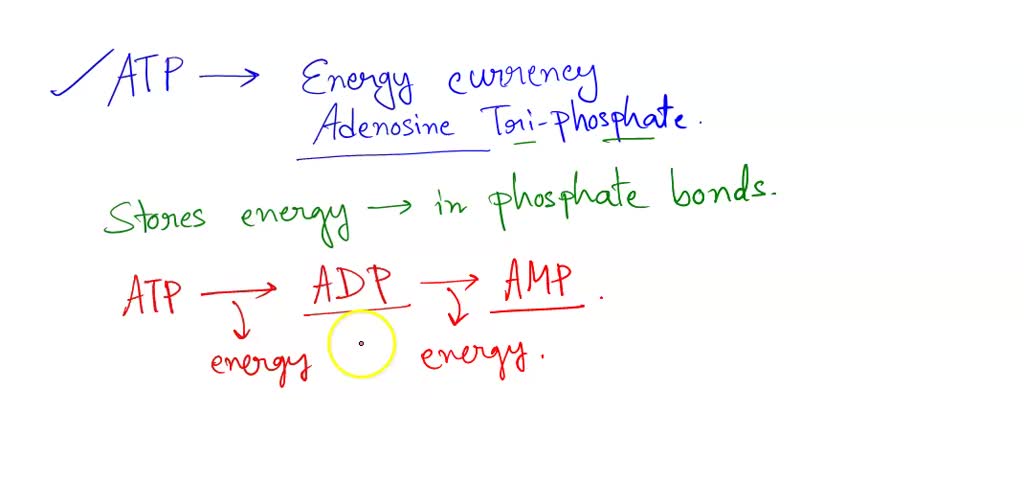 ATP → Energy currency
Adenosine Tri-phosphate.
Stores energy → in phosphate bonds.
ATP → ADP → AMP.
energy energy.